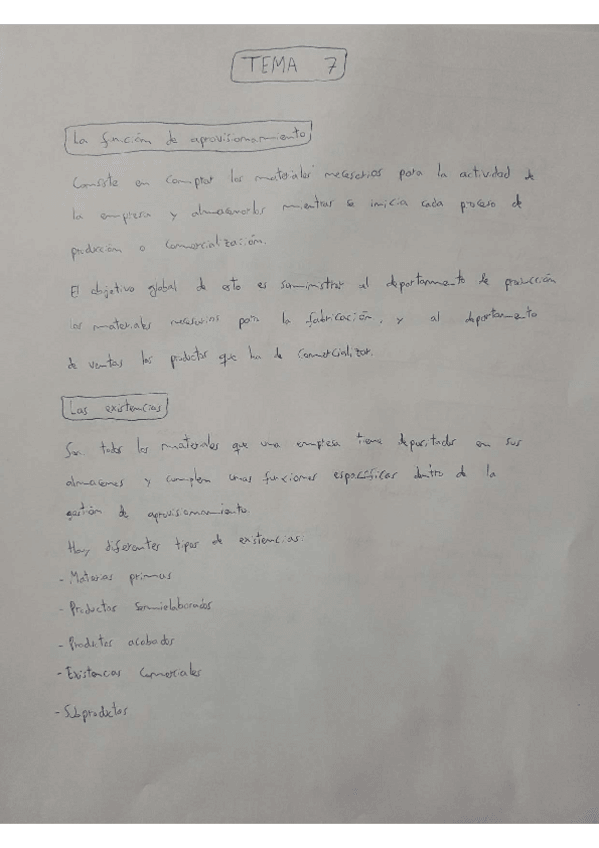 TEMA 7
La función de aprovisionamiento
Consiste en comprar los materiales necesarios para la actividad de
la empresa y almacenarlos mientras se inicia cada proceso de
producción o comercialización.
El objetivo global de esto es suministrar al departamento de producción
los materiales necesarios para la fabricación, y al departamento
de ventas los productos que ha de comercializar.
Las existencias
Son todos los materiales que una empresa tiene depositados en sus
almacenes y cumplen unas funciones específicas dentro de la
gestión de aprovisionamiento.
Hay diferentes tipos de existencias:
- Materias primas
- Productos semielaborados
- Productos acabados
- Existencias comerciales
- Subproductos